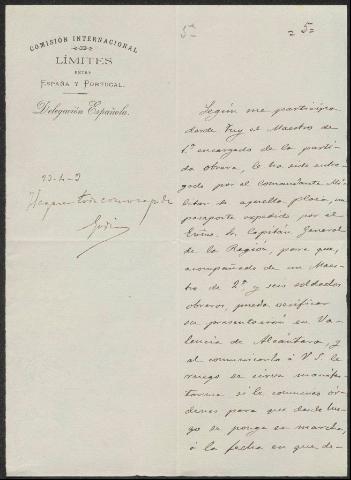 5ª
= 5 =
COMISIÓN INTERNACIONAL
LÍMITES
ENTRE
ESPAÑA Y PORTUGAL.
Delegación Española.
Según me participa
desde Tuy el Maestro de
1ª encargado de la parti-
da obrera, le ha sido entre-
gado por el Comandante Mi-
litar de aquella plaza, un
pasaporte expedido por el
Exmo. Sr. Capitán General
de la Región, para que,
acompañado de un Maes-
tro de 2ª y seis soldados
obreros, pueda verificar
su presentación en Va-
lencia de Alcántara, y
al comunicarlo á V.S. le
ruego se sirva manifes-
tarme si le comunico ór-
denes para que desde lue-
go se ponga en marcha,
ó la fecha en que de-